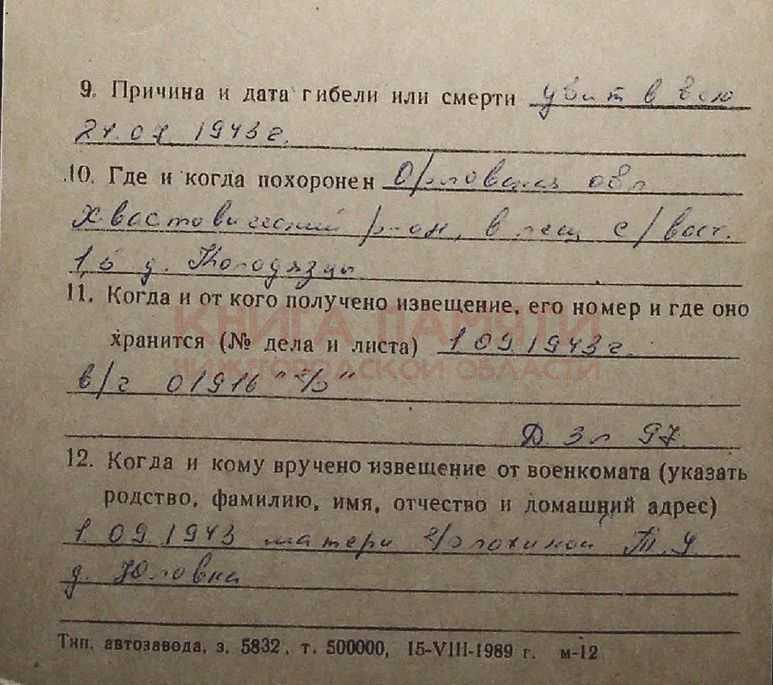 9. Причина и дата гибели или смерти убит в бою
1943г.
10. Где и когда похоронен Орловская обл
Хвастовический р-он, в лесу с/вост.
1,5 д. Колодязцы
11. Когда и от кого получено извещение, его номер и где оно
хранится (№ дела и листа) 1 09.1943г.
КНИГА ПАМЯТИ
НИЖЕГОРОДСКОЙ ОБЛАСТИ
в/ч 01916
Д. 3 л 97.
12. Когда и кому вручено извещение от военкомата (указать
родство, фамилию, имя, отчество и домашний адрес)
1.09.1943 матери
д. Юловка
Тип. автозавода, з. 5832, т. 500000, 15-VIII-1989 г. м-12